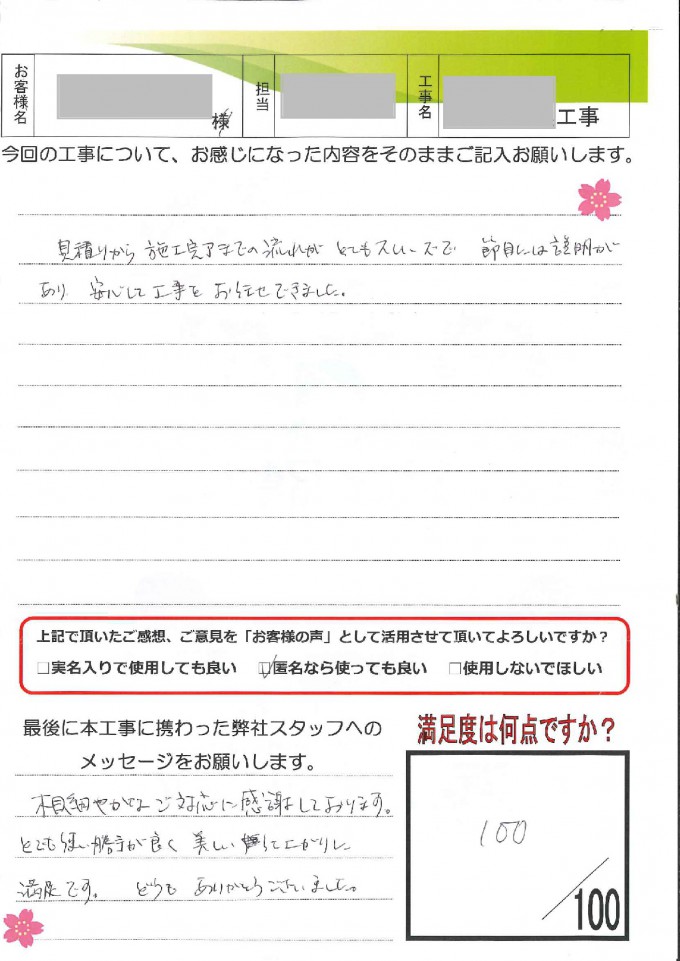 お客様名
様
担当
工事名
工事
今回の工事について、お感じになった内容をそのままご記入お願いします。
見積りから 施工完了までの流れが とてもスムーズで 節目には説明が
あり 安心して工事を お任せできました。
上記で頂いたご感想、ご意見を「お客様の声」として活用させて頂いてよろしいですか？
□実名入りで使用しても良い ☑匿名なら使っても良い □使用しないでほしい
最後に本工事に携わった弊社スタッフへの
メッセージをお願いします。
きめ細やかなご対応に感謝しております。
とても使い勝手が良く 美しい 仕上がりに
満足です。 どうも ありがとうございました。
満足度は何点ですか？
100
/100